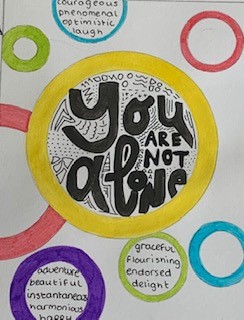 courageous
phenomenal
optimistic
laugh
you
ARE
NOT
alone
graceful
flourishing
endorsed
delight
adventure
beautiful
instantaneous
harmonious
happy